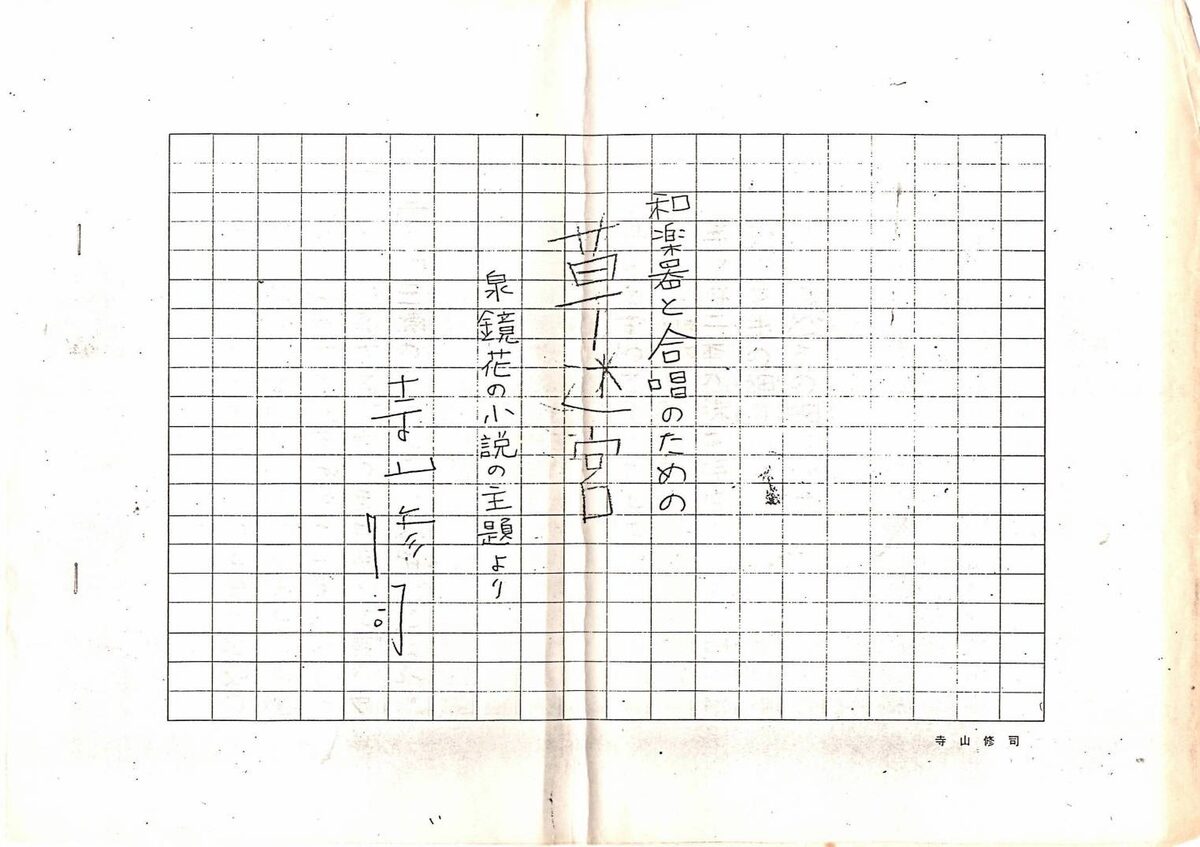 和楽器と合唱のための
草迷宮
泉鏡花の小説の主題より
寺山修司
寺山修司